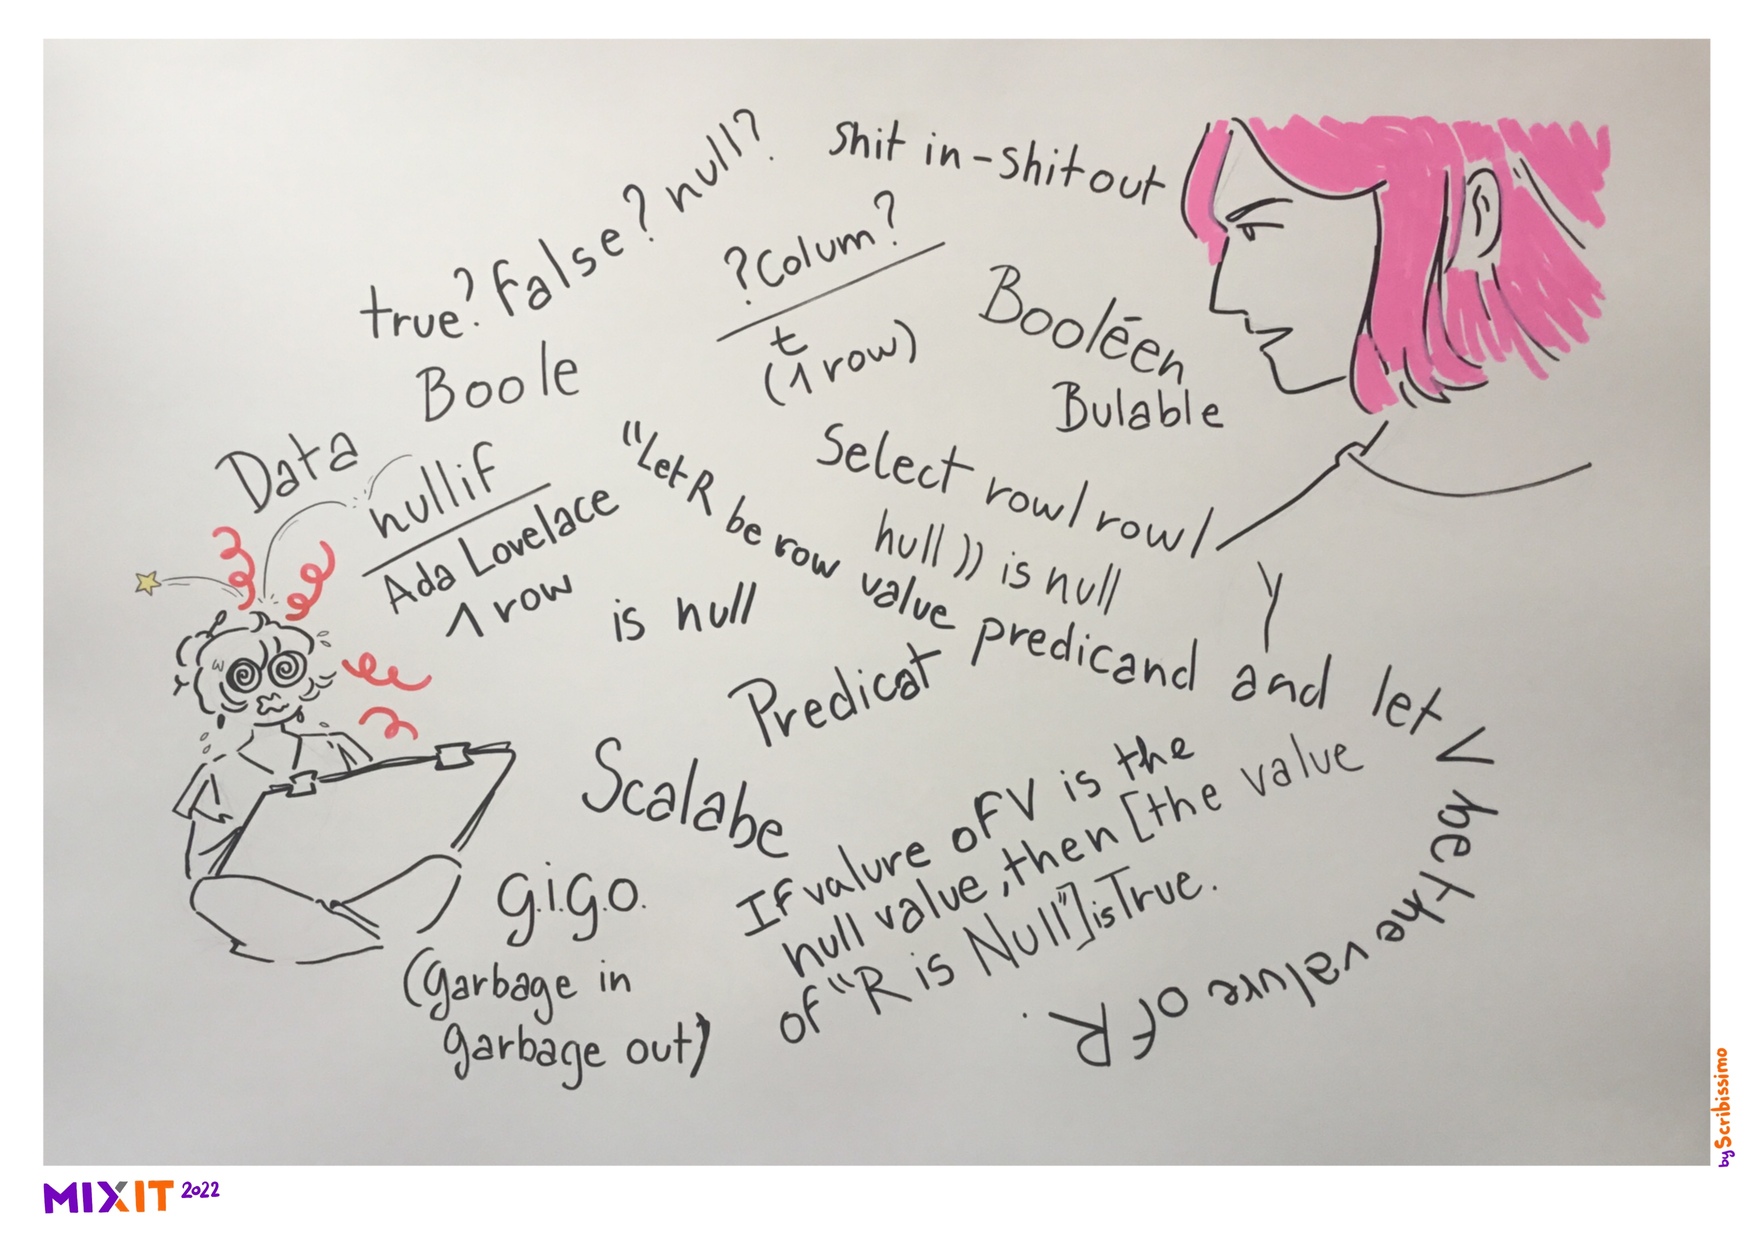 true? False? null?
Shit in-Shit out
?Colum?
t
(1 row)
Booléen
Bulable
Boole
Data
nullif
Ada Lovelace
1 row
is null
Select row(row(
null)) is null
Y
"Let R be row value predicand and let V be the valure of R.
Predicat
Scalabe
If valure of V is the
null value, then [the value
of "R is Null"] is True.
G.I.G.O.
(garbage in
garbage out)
by Scribissimo
MIXIT 2022